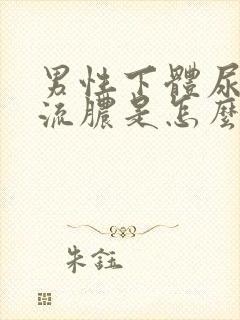 男性下體尿
流膿是怎麼
朱鈺